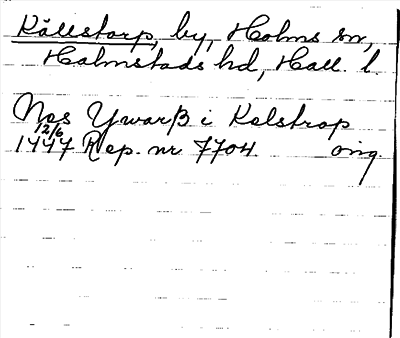 Källstorp, by, Holms sn,
Halmstads hd, Hall. l.
Nos Ywarß i Kelstrop
12/6
1447 Rep. nr 7704 orig.